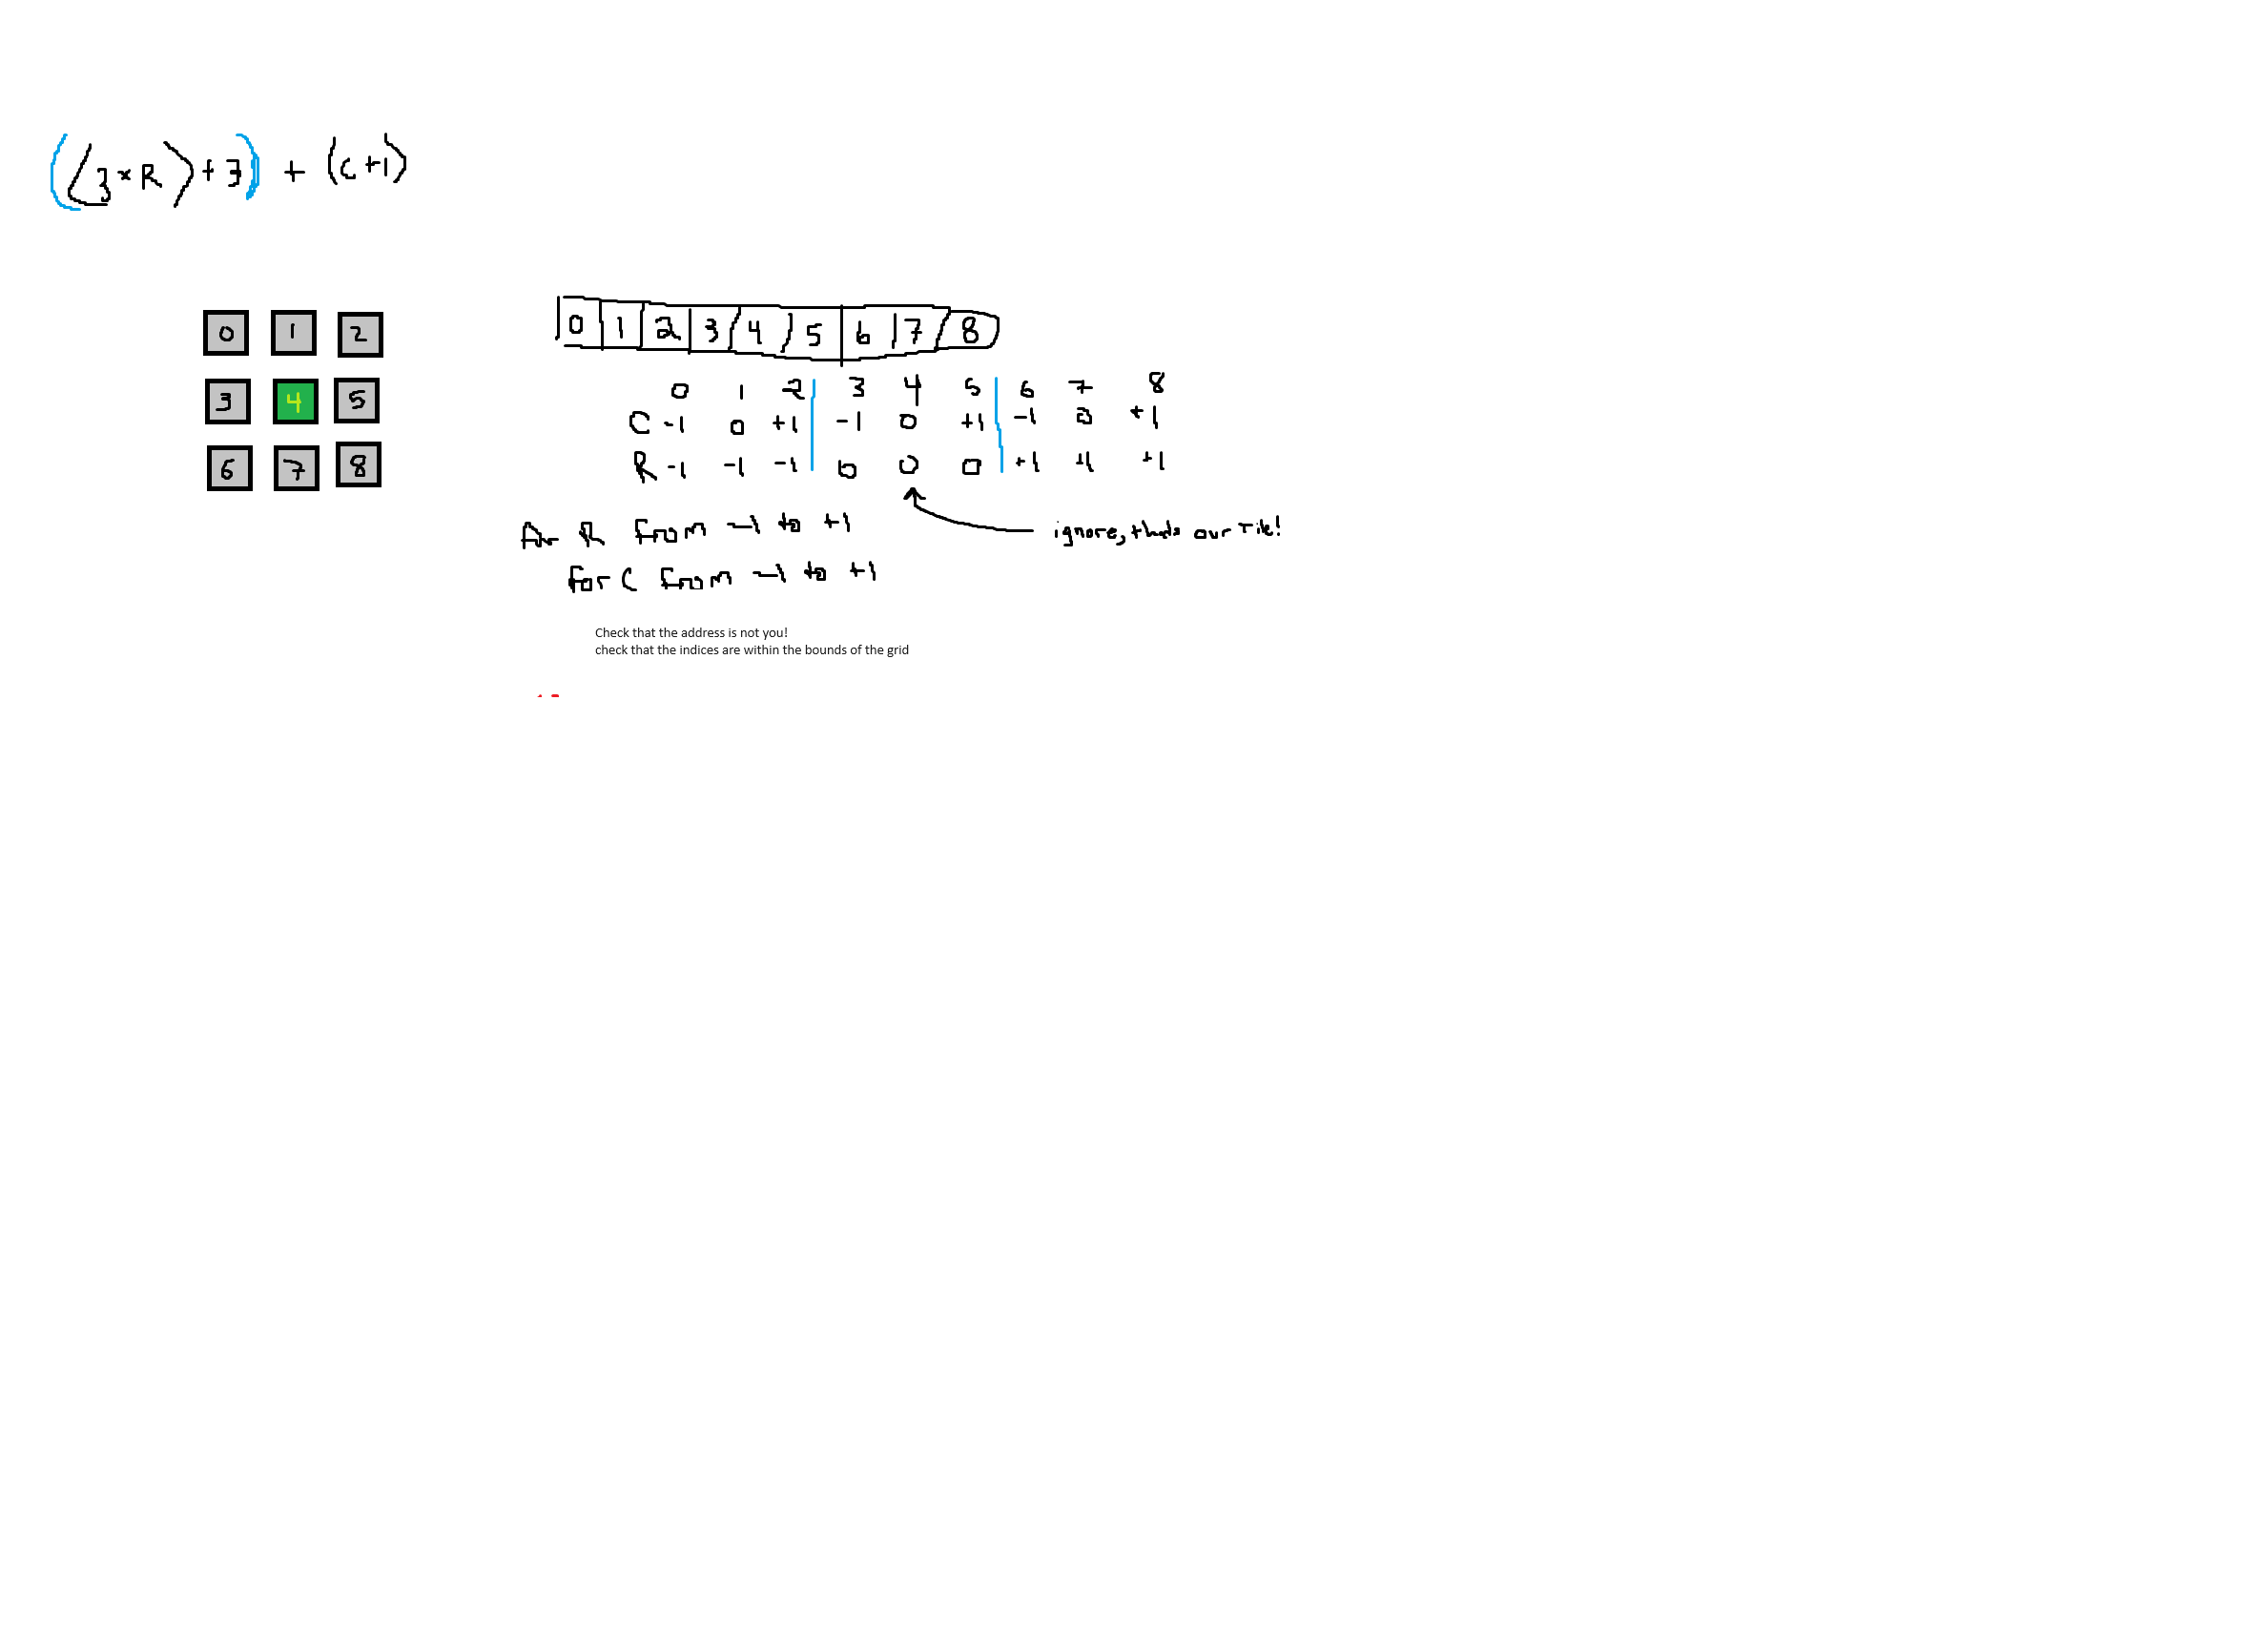 ((3×R)+3) + (C+1)
0 1 2
3 4 5
6 7 8
0 1 2 3 4 5 6 7 8
0 1 2 3 4 5 6 7 8
C -1 0 +1 -1 0 +1 -1 0 +1
R -1 -1 -1 0 0 0 +1 +1 +1
For R from -1 to +1
for C from -1 to +1
ignore, thats our Tile!
Check that the address is not you!
check that the indices are within the bounds of the grid